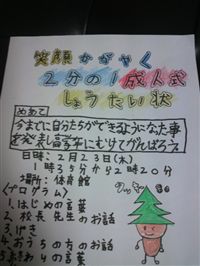 笑顔かがやく
2分の1成人式
しょうたい状
めあて
今までに自分たちができるようになった事
を発表し高学年にむけてがんばろう
日時:2月23日(木)
1時35分から2時20分
場所:体育館
〈プログラム〉
1.はじめの言葉
2.校長先生のお話
3.げき
4.おうちの方のお話
5.おわりの言葉